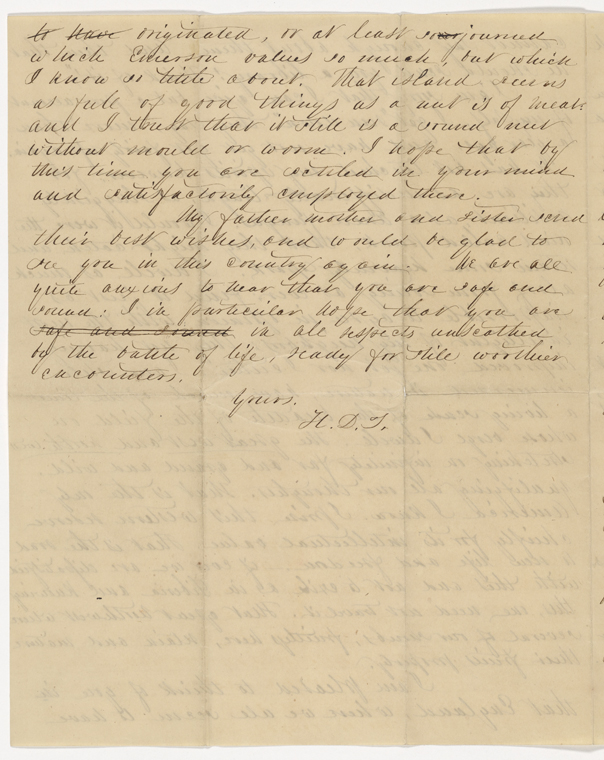 to have originated, or at least sojourned
which Emerson values so much, but which
I know so little about. That island seems
as full of good things as a nut is of meat:
and I trust that it still is a sound nut
without mould or worm. I hope that by
this time you are settled in your mind
and satisfactorily employed there.
My father mother and sister send
their best wishes, and would be glad to
see you in this country again. We are all
quite anxious to hear that you are safe and
sound: I in particular hope that you are
safe and sound in all respects unscathed
by the battle of life, ready for still worthier
encounters.
Yours.
H. D. T.